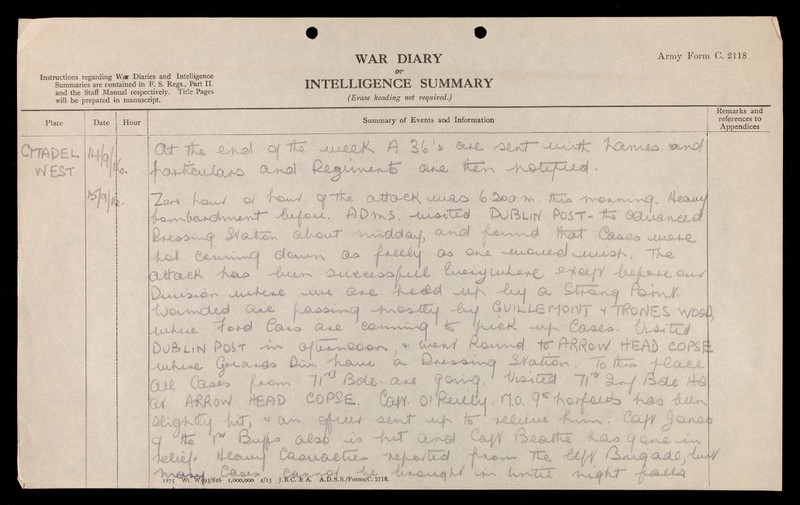 WAR DIARY
or
INTELLIGENCE SUMMARY
(Erase heading not required.)
Army Form C. 2118
Instructions regarding War Diaries and Intelligence
Summaries are contained in F. S. Regs., Part II.
and the Staff Manual respectively. Title Pages
will be prepared in manuscript.
Place
Date
Hour
Summary of Events and Information
Remarks and
references to
Appendices
CITADEL
WEST
14/9/16.
At the end of the week A 36's are sent with names and
particulars and Regiments are then notified.
15/9/16.
Zero hour or hour of the attack was 6.20 a.m. this morning. Heavy
bombardment before. ADMS. visited DUBLIN POST - the advanced
Dressing Station about midday, and found that Cases were
not coming down as freely as one would wish. The
attack has been successful everywhere except before our
Division where we are held up by a Strong Point.
Wounded are passing mostly by GUILLEMONT & TRONES WOOD,
where Ford Cars are coming to pick up Cases. Visited
DUBLIN POST in afternoon, & went round to ARROW HEAD COPSE
where Guards Div have a Dressing Station. To this place
all Cases from 71st Bde. are going. Visited 71st Inf Bde HQ
at ARROW HEAD COPSE. Capt. O'Reilly M.O. 9th Norfolks has been
slightly hit, & an officer sent up to relieve him. Capt Jones
of the 1st Buffs also is hit and Capt Beattie has gone in
relief. Heavy Casualties reported from the left Brigade, but
many Cases cannot be brought in until night falls
1875 Wt. W593/826 1,000,000 4/15 J.B.C. & A. A.D.S.S./Forms/C. 2118.